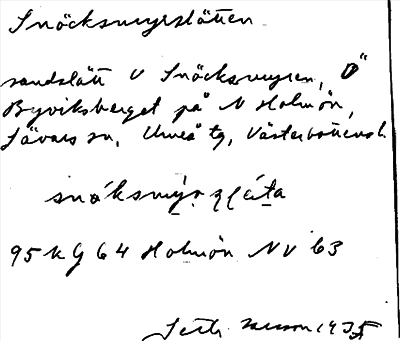 Snöcksmyrslätten
sandslätt V Snöcksmyren, Ö
Byviksberget på N Holmön,
Sävars sn, Umeå tg, Västerbottens l.
95 KG 64 Holmön NV 63
1935